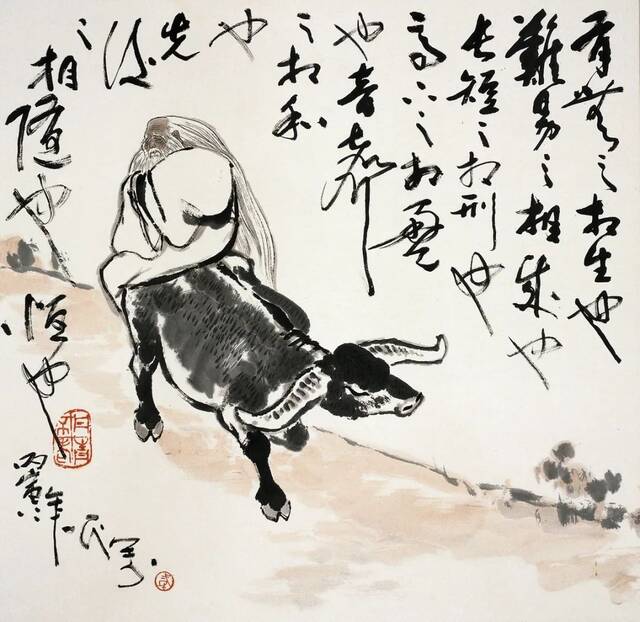 有無之相生也
難易之相成也
長短之相刑也
高下之相盈
也音聲
之相和
也
先後
之相隨也
恆也
丙寅年